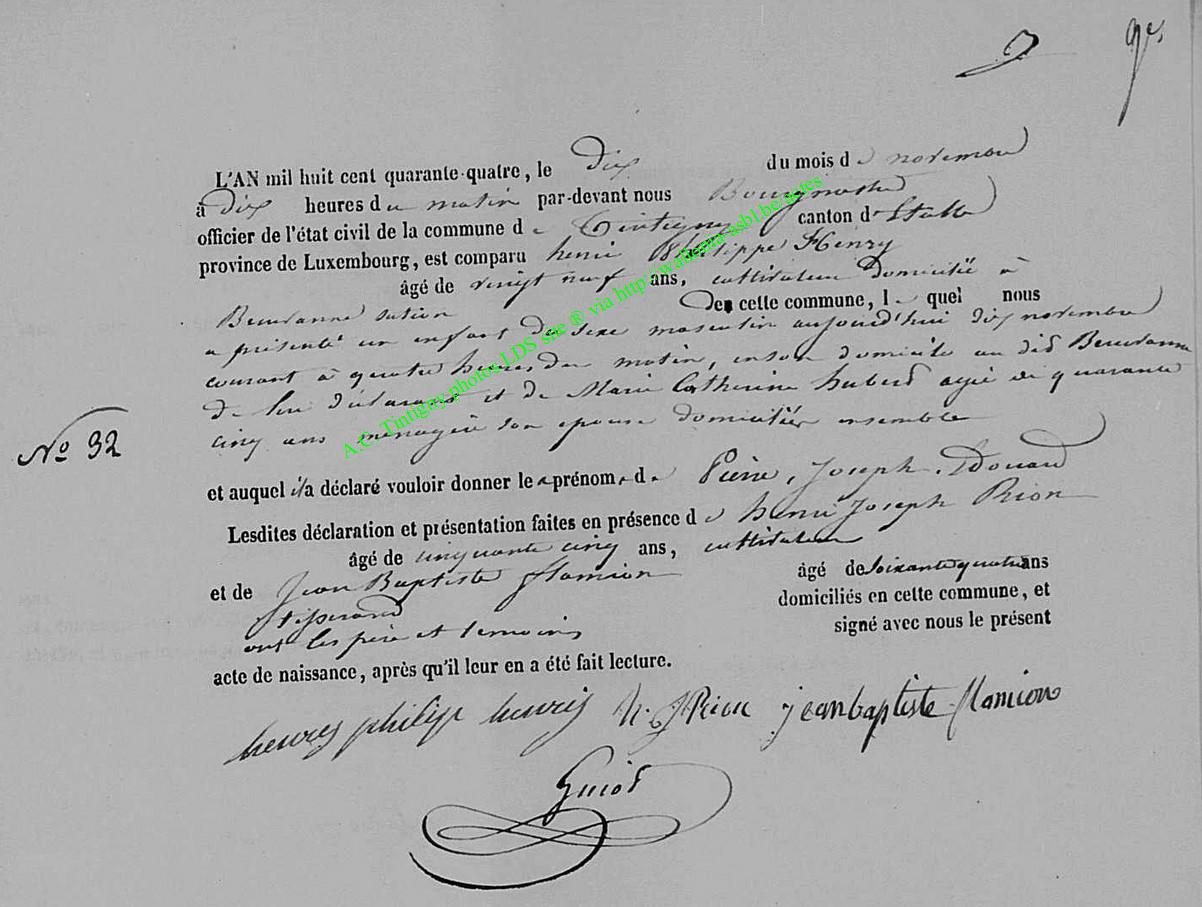 9e.
L'AN mil huit cent quarante-quatre, le dix du mois de novembre
à dix heures du matin par-devant nous Bourgmestre
officier de l'état civil de la commune de Tintigny canton d'Etalle
province de Luxembourg, est comparu henri Philippe Henry
âgé de vingt neuf ans, cultivateur domicilié à
Breuvanne section de cette commune, lequel nous
a présenté un enfant du sexe masculin aujourd'hui dix novembre
courant à quatre heures du matin, en son domicile au dit Breuvanne
de lui déclarant et de Marie Catherine hubert agée de quarante
cinq ans ménagère son epouse domiciliés ensemble
N° 32
et auquel il a déclaré vouloir donner le prénom de Pierre, Joseph, Edouard
Lesdites déclaration et présentation faites en présence de henri Joseph Rion
âgé de cinquante cinq ans, cultivateur
et de Jean Baptiste flamion âgé de soixante quatre ans
tisserand domiciliés en cette commune, et
ont les père et temoins signé avec nous le présent
acte de naissance, après qu'il leur en a été fait lecture.
henry philip henry h. J Rion jean baptiste flamion
Guiot
A.C. Tintigny photos LDS site ® via http://www. asbl.be/actes